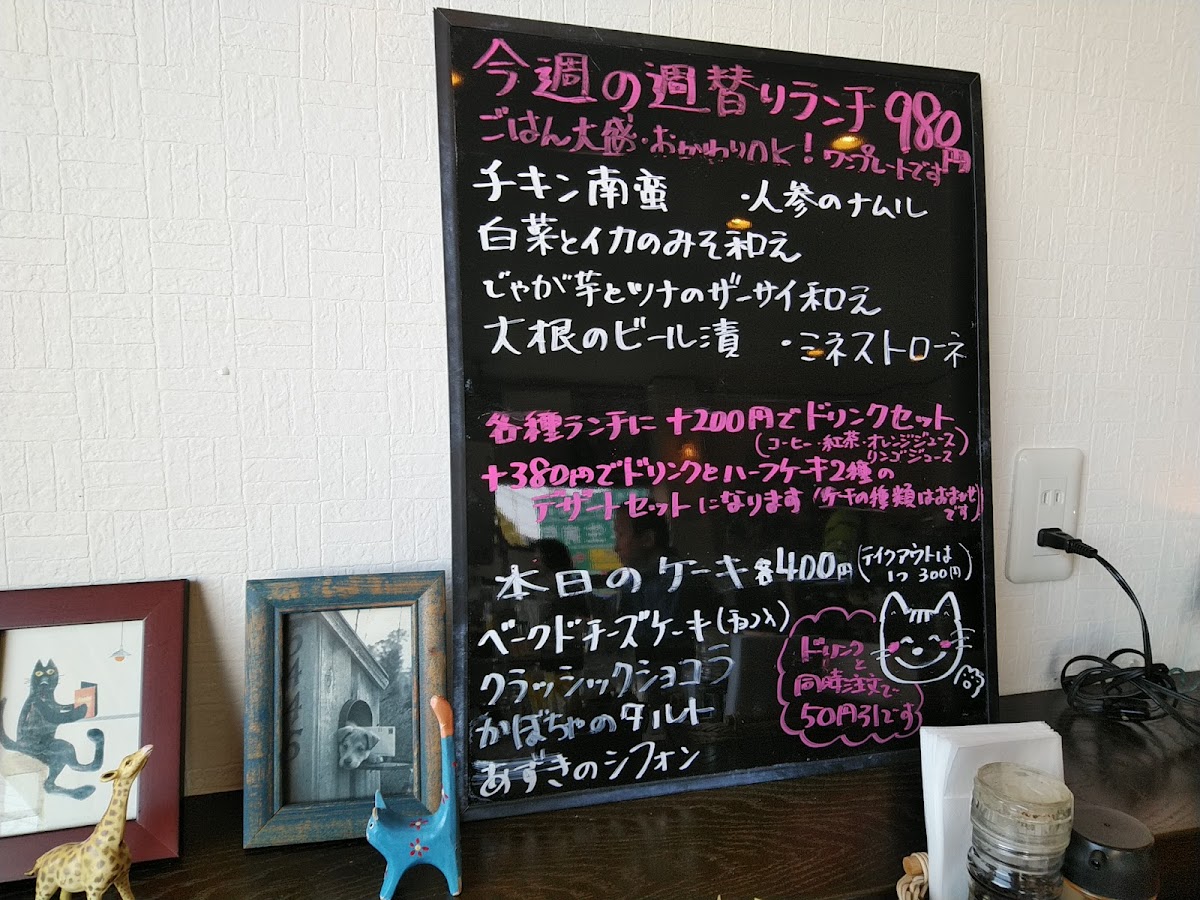 今週の週替りランチ 980円
ごはん大盛・おかわりOK! ワンプレートです
チキン南蛮 ・人参のナムル
白菜とイカのみそ和え
じゃが芋とツナのザーサイ和え
大根のビール漬 ・ミネストローネ
各種ランチに +200円でドリンクセット
(コーヒー・紅茶・オレンジジュース
リンゴジュース)
+380円でドリンクとハーフケーキ2種の
デザートセットになります(ケーキの種類はおまかせ
です)
本日のケーキ各400円(テイクアウトは
1つ 300円)
ベークドチーズケーキ
クラッシックショコラ
かぼちゃのタルト
あずきのシフォン
ドリンクと
同時注文で
50円引です